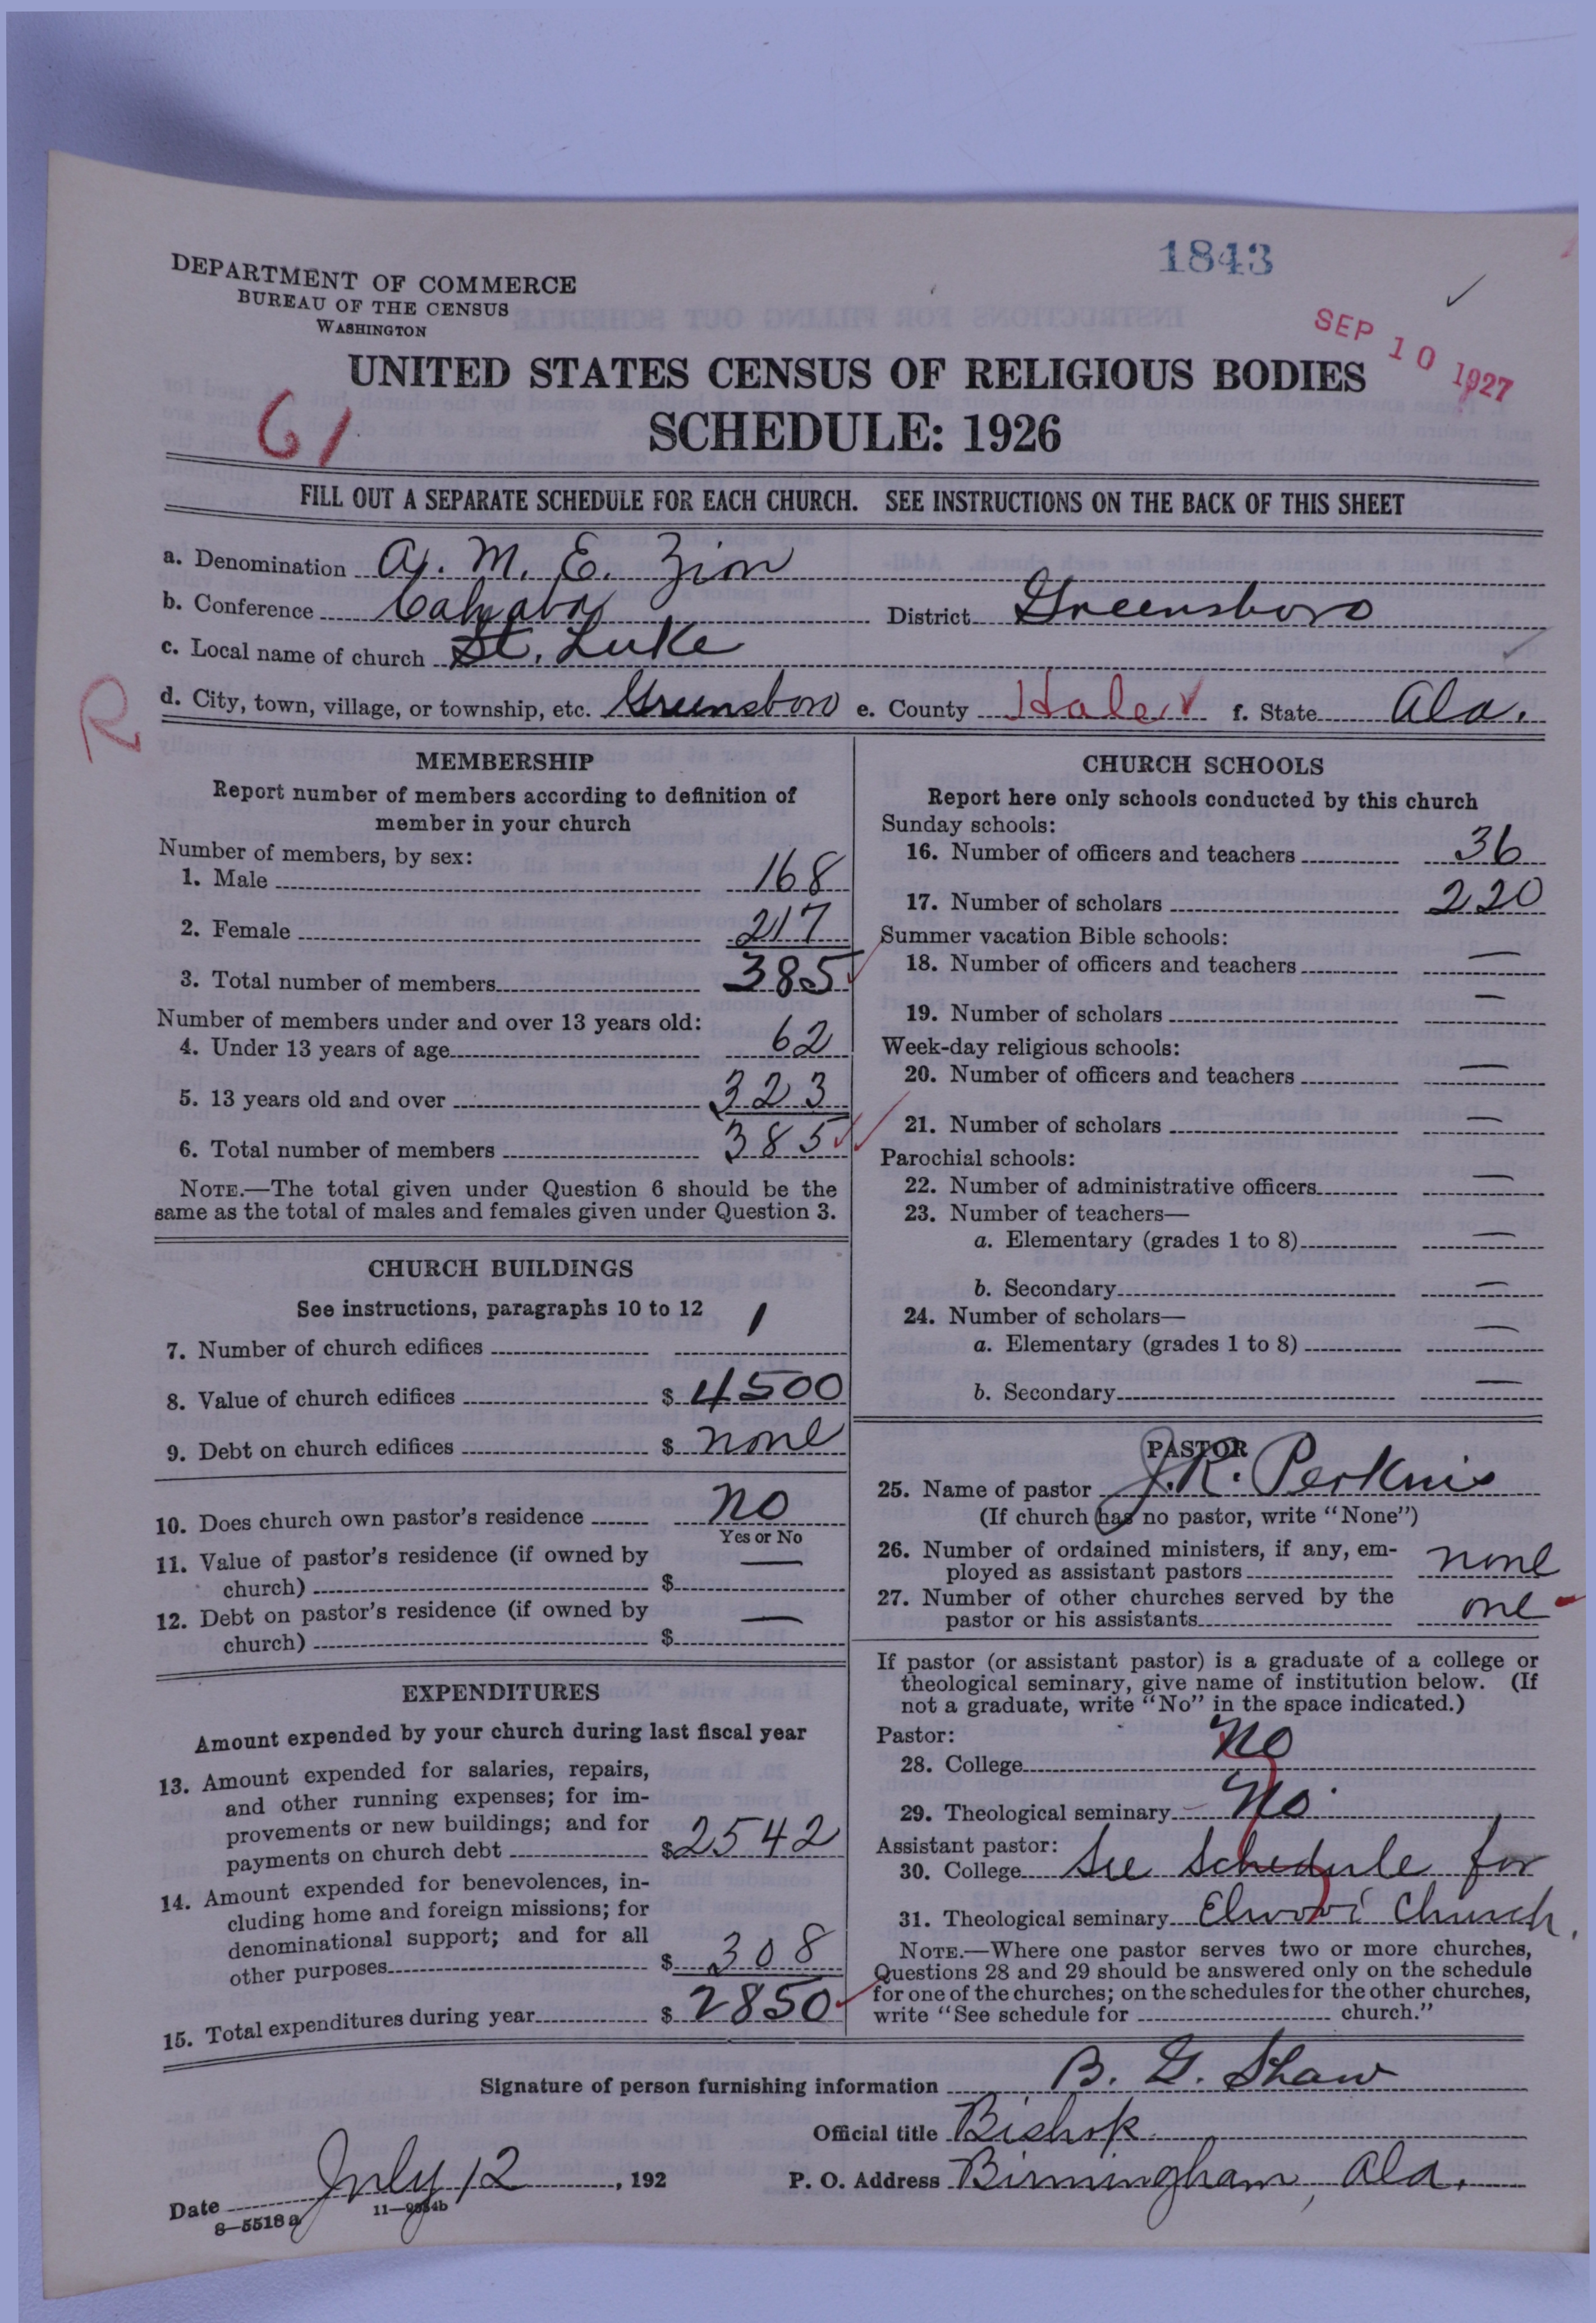 1843
DEPARTMENT OF COMMERCE
BUREAU OF THE CENSUS
WASHINGTON
SEP 10 1927
UNITED STATES CENSUS OF RELIGIOUS BODIES
61
SCHEDULE: 1926
FILL OUT A SEPARATE SCHEDULE FOR EACH CHURCH. SEE INSTRUCTIONS ON THE BACK OF THIS SHEET
a. Denomination A. M. E. Zion
b. Conference Cahaba District Greensboro
c. Local name of church St. Luke
R
d. City, town, village, or township, etc. Greensboro e. County Hale f. State Ala.
MEMBERSHIP
Report number of members according to definition of
member in your church
Number of members, by sex:
1. Male 168
2. Female 217
3. Total number of members 385
Number of members under and over 13 years old:
4. Under 13 years of age 62
5. 13 years old and over 323
6. Total number of members 385
NOTE.—The total given under Question 6 should be the
same as the total of males and females given under Question 3.
CHURCH BUILDINGS
See instructions, paragraphs 10 to 12
7. Number of church edifices 1
8. Value of church edifices $ 4500
9. Debt on church edifices $ none
10. Does church own pastor's residence no
Yes or No
11. Value of pastor's residence (if owned by
church) $ —
12. Debt on pastor's residence (if owned by
church) $ —
EXPENDITURES
Amount expended by your church during last fiscal year
13. Amount expended for salaries, repairs,
and other running expenses; for im-
provements or new buildings; and for
payments on church debt $ 2542
14. Amount expended for benevolences, in-
cluding home and foreign missions; for
denominational support; and for all
other purposes $ 308
15. Total expenditures during year $ 2850
CHURCH SCHOOLS
Report here only schools conducted by this church
Sunday schools:
16. Number of officers and teachers 36
17. Number of scholars 220
Summer vacation Bible schools:
18. Number of officers and teachers —
19. Number of scholars —
Week-day religious schools:
20. Number of officers and teachers —
21. Number of scholars —
Parochial schools:
22. Number of administrative officers —
23. Number of teachers—
a. Elementary (grades 1 to 8) —
b. Secondary —
24. Number of scholars—
a. Elementary (grades 1 to 8) —
b. Secondary —
PASTOR
25. Name of pastor J. R. Perkins
(If church has no pastor, write "None")
26. Number of ordained ministers, if any, em-
ployed as assistant pastors none
27. Number of other churches served by the
pastor or his assistants one
If pastor (or assistant pastor) is a graduate of a college or
theological seminary, give name of institution below. (If
not a graduate, write "No" in the space indicated.)
Pastor:
28. College No
29. Theological seminary No.
Assistant pastor:
30. College See Schedule for
31. Theological seminary Church.
NOTE.—Where one pastor serves two or more churches,
Questions 28 and 29 should be answered only on the schedule
for one of the churches; on the schedules for the other churches,
write "See schedule for church."
Signature of person furnishing information B. G. Shaw
Official title Bishop
Date July 12, 192 P. O. Address Birmingham, Ala.
8—5518 a 11—9684b